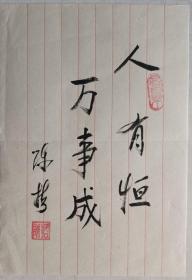 人有恒
万事成
陈哲